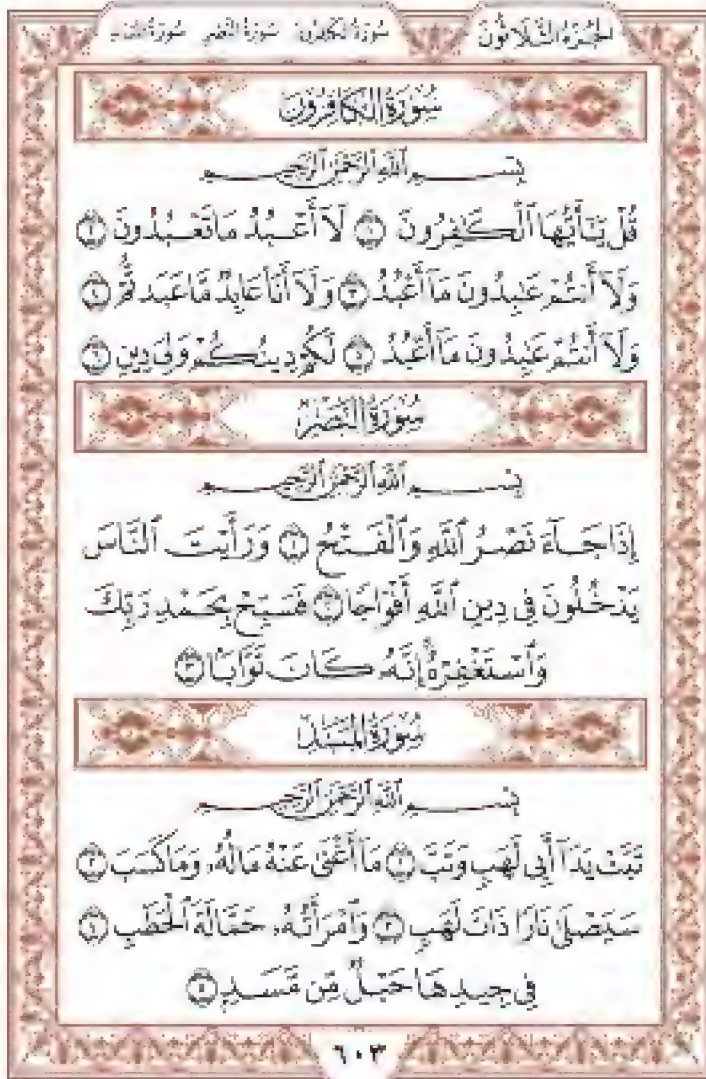 الجزء الثلاثون سورة الكافرون سورة النصر سورة المسد
سُورَةُ الكَافِرُونَ
بِسْمِ ٱللَّهِ ٱلرَّحْمَٰنِ ٱلرَّحِيمِ
قُلْ يَٰٓأَيُّهَا ٱلْكَٰفِرُونَ ١ لَآ أَعْبُدُ مَا تَعْبُدُونَ ٢
وَلَآ أَنتُمْ عَٰبِدُونَ مَآ أَعْبُدُ ٣ وَلَآ أَنَا۠ عَابِدٌ مَّا عَبَدتُّمْ ٤
وَلَآ أَنتُمْ عَٰبِدُونَ مَآ أَعْبُدُ ٥ لَكُمْ دِينُكُمْ وَلِىَ دِينِ ٦
سُورَةُ النَّصْرِ
بِسْمِ ٱللَّهِ ٱلرَّحْمَٰنِ ٱلرَّحِيمِ
إِذَا جَآءَ نَصْرُ ٱللَّهِ وَٱلْفَتْحُ ١ وَرَأَيْتَ ٱلنَّاسَ
يَدْخُلُونَ فِى دِينِ ٱللَّهِ أَفْوَاجًا ٢ فَسَبِّحْ بِحَمْدِ رَبِّكَ
وَٱسْتَغْفِرْهُ ۚ إِنَّهُۥ كَانَ تَوَّابًۢا ٣
سُورَةُ المَسَدِ
بِسْمِ ٱللَّهِ ٱلرَّحْمَٰنِ ٱلرَّحِيمِ
تَبَّتْ يَدَآ أَبِى لَهَبٍ وَتَبَّ ١ مَآ أَغْنَىٰ عَنْهُ مَالُهُۥ وَمَا كَسَبَ ٢
سَيَصْلَىٰ نَارًا ذَاتَ لَهَبٍ ٣ وَٱمْرَأَتُهُۥ حَمَّالَةَ ٱلْحَطَبِ ٤
فِى جِيدِهَا حَبْلٌ مِّن مَّسَدٍۭ ٥
٦٠٣